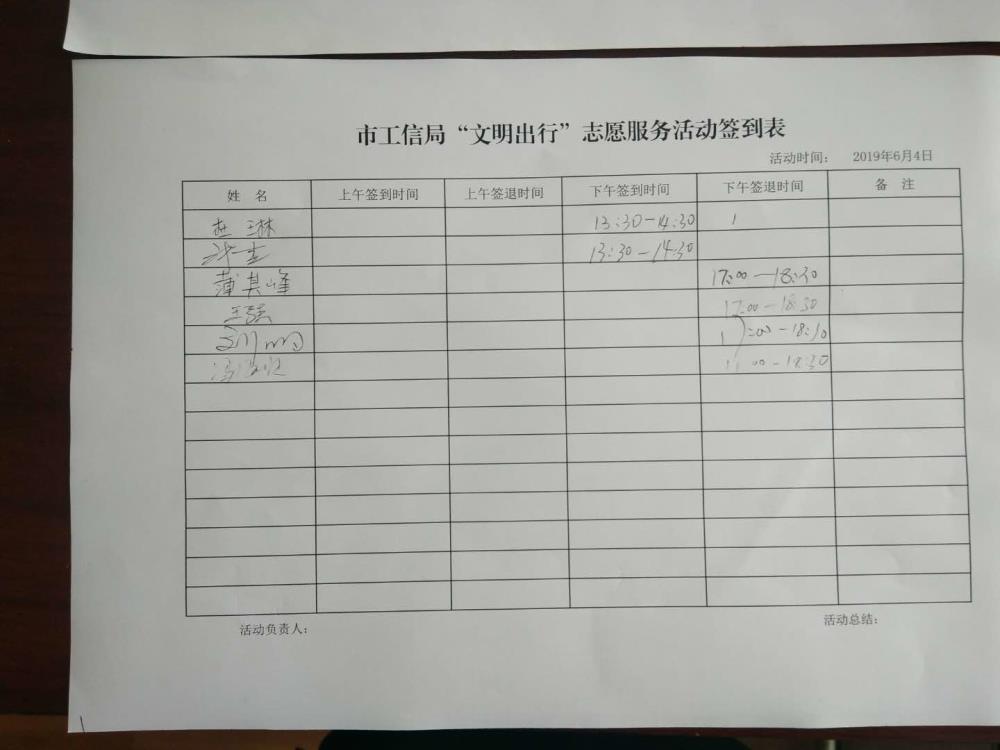 市工信局“文明出行”志愿服务活动签到表
活动时间： 2019年6月4日
姓 名 上午签到时间 上午签退时间 下午签到时间 下午签退时间 备 注
杜琳 13:30-14:30
13:30-14:30
蒲其峰 17:00-18:30
王强 17:00-18:30
17:00-18:30
00-18:30
活动负责人： 活动总结：